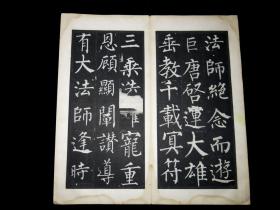 法師絕念而遊
巨唐啓運大雄
垂教千載冥符
三乘迭耀寵重
恩顧顯闡讚導
有大法師逢時